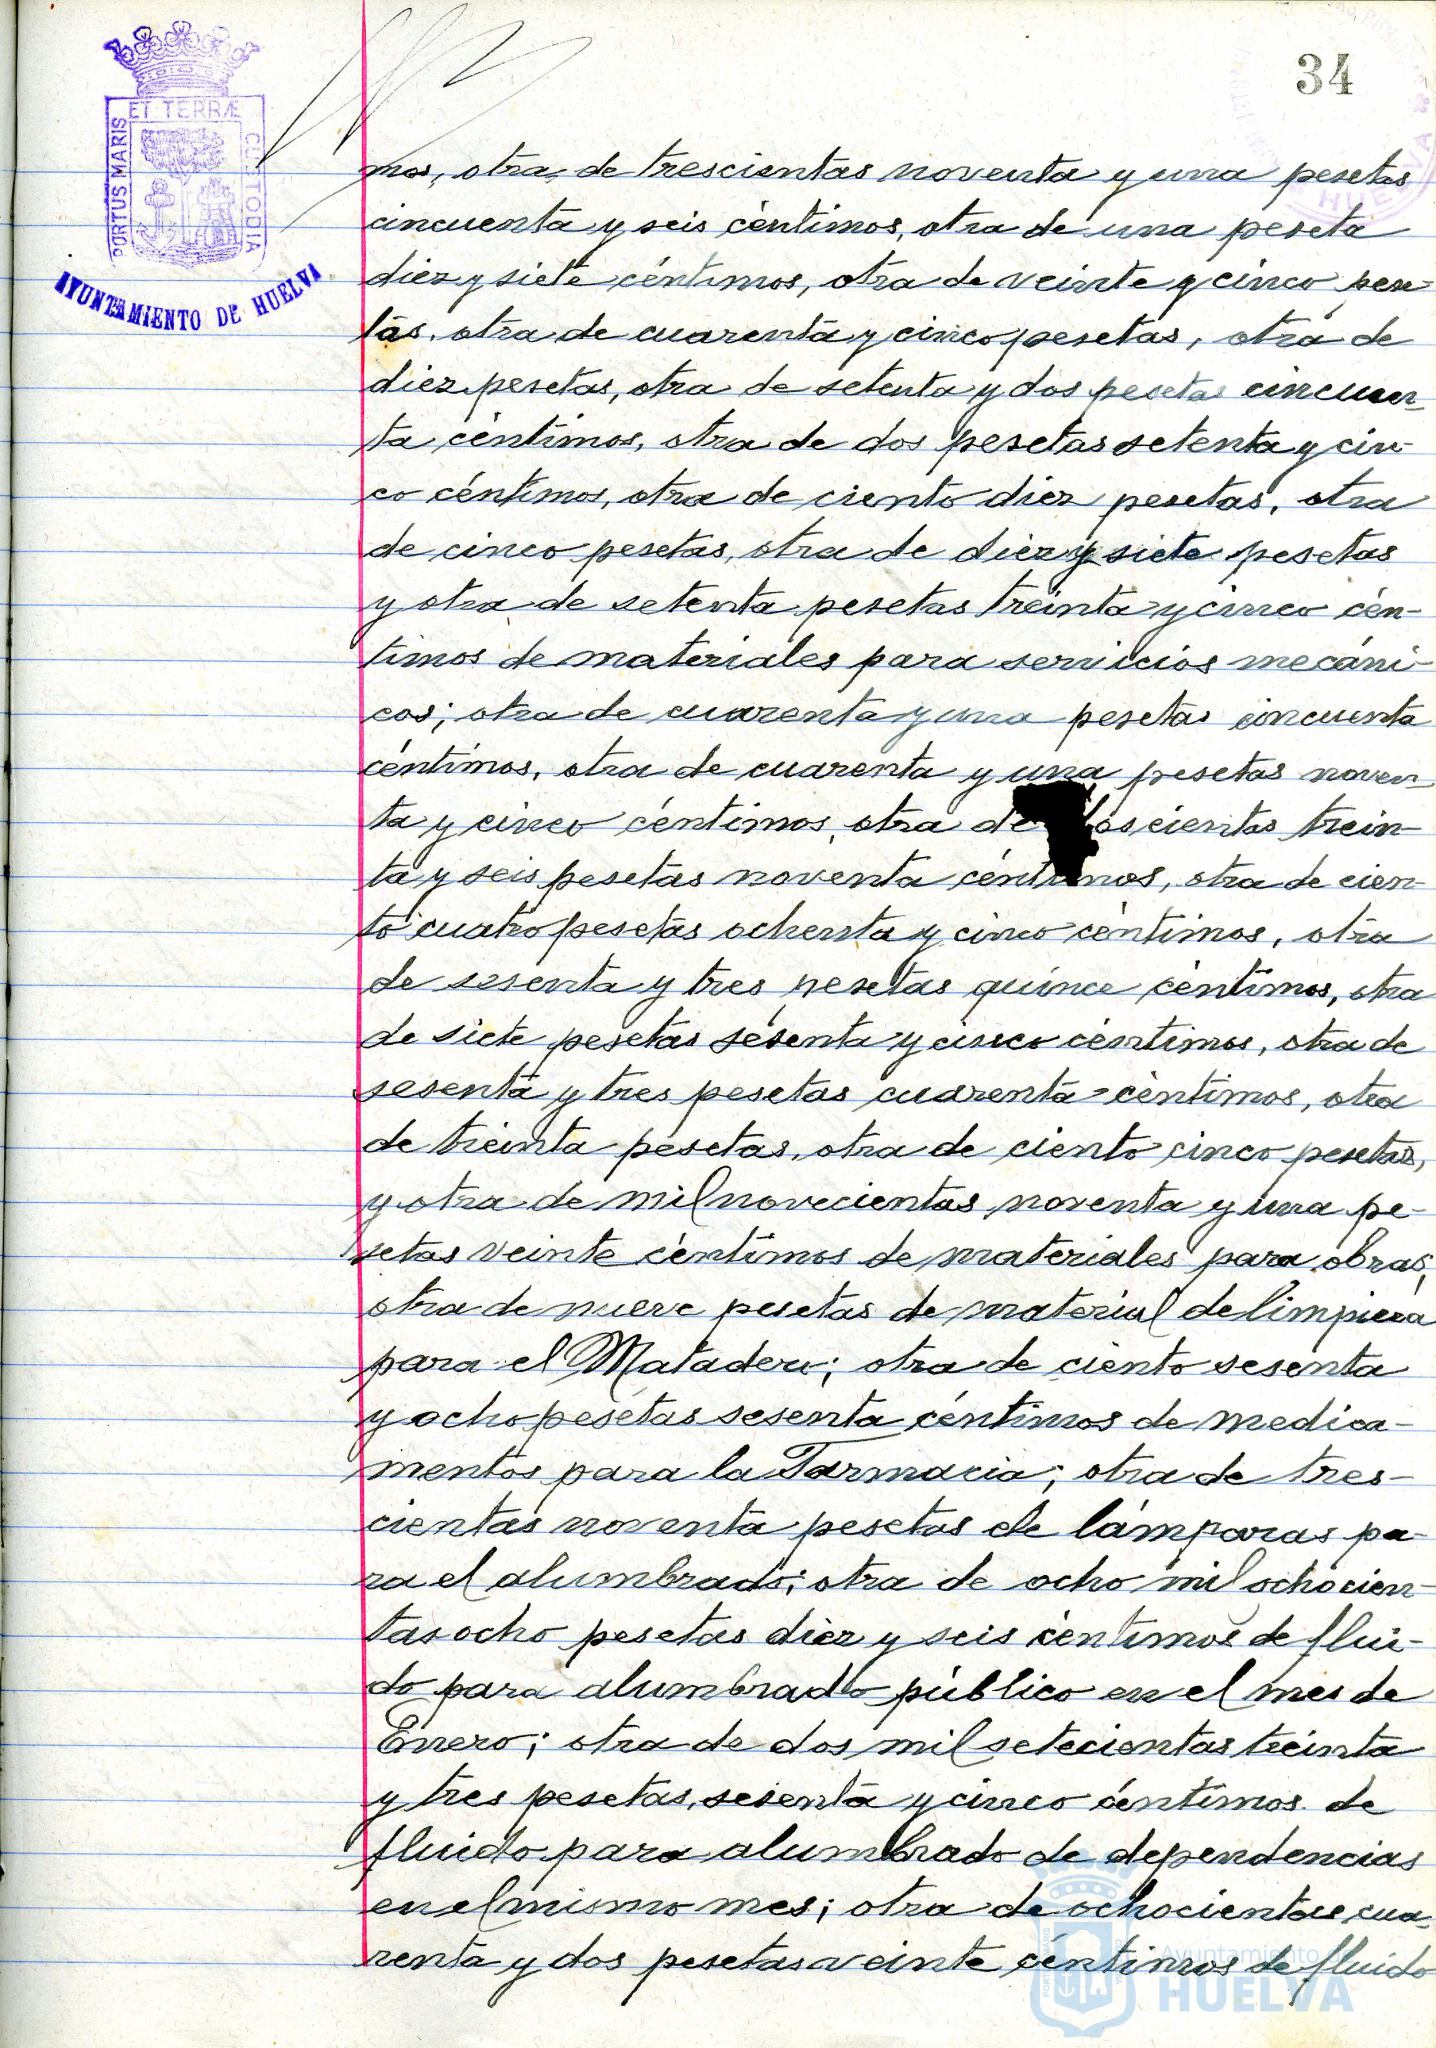 34
ET TERRÆ
PORTUS MARIS
CUSTODIA
AYUNTAMIENTO DE HUELVA
HUELVA
mos, otra de trescientas noventa y una pesetas
cincuenta y seis céntimos, otra de una peseta
diez y siete céntimos, otra de veinte y cinco pese
tas, otra de cuarenta y cinco pesetas, otra de
diez pesetas, otra de setenta y dos pesetas cincuen-
ta céntimos, otra de dos pesetas setenta y cin-
co céntimos, otra de ciento diez pesetas, otra
de cinco pesetas, otra de diez y siete pesetas
y otra de setenta pesetas treinta y cinco cén-
timos de materiales para servicios mecáni-
cos; otra de cuarenta y una pesetas cincuenta
céntimos, otra de cuarenta y una pesetas noven-
ta y cinco céntimos, otra de doscientas trein-
ta y seis pesetas noventa céntimos, otra de cien-
to cuatro pesetas ochenta y cinco céntimos, otra
de sesenta y tres pesetas quince céntimos, otra
de siete pesetas sesenta y cinco céntimos, otra de
sesenta y tres pesetas cuarenta céntimos, otra
de treinta pesetas, otra de ciento cinco pesetas,
y otra de mil novecientas noventa y una pe-
setas veinte céntimos de materiales para obras;
otra de nueve pesetas de material de limpieza
para el Matadero; otra de ciento sesenta
y ocho pesetas sesenta céntimos de medica-
mentos para la Farmacia; otra de tres-
cientas noventa pesetas de lámparas pa-
ra el alumbrado; otra de ocho mil ochocien-
tas ocho pesetas diez y seis céntimos de flui-
do para alumbrado público en el mes de
Enero; otra de dos mil setecientas treinta
y tres pesetas, sesenta y cinco céntimos de
fluido para alumbrado de dependencias
en el mismo mes; otra de ochocientas cua-
renta y dos pesetas veinte céntimos de fluido
Ayuntamiento de
HUELVA